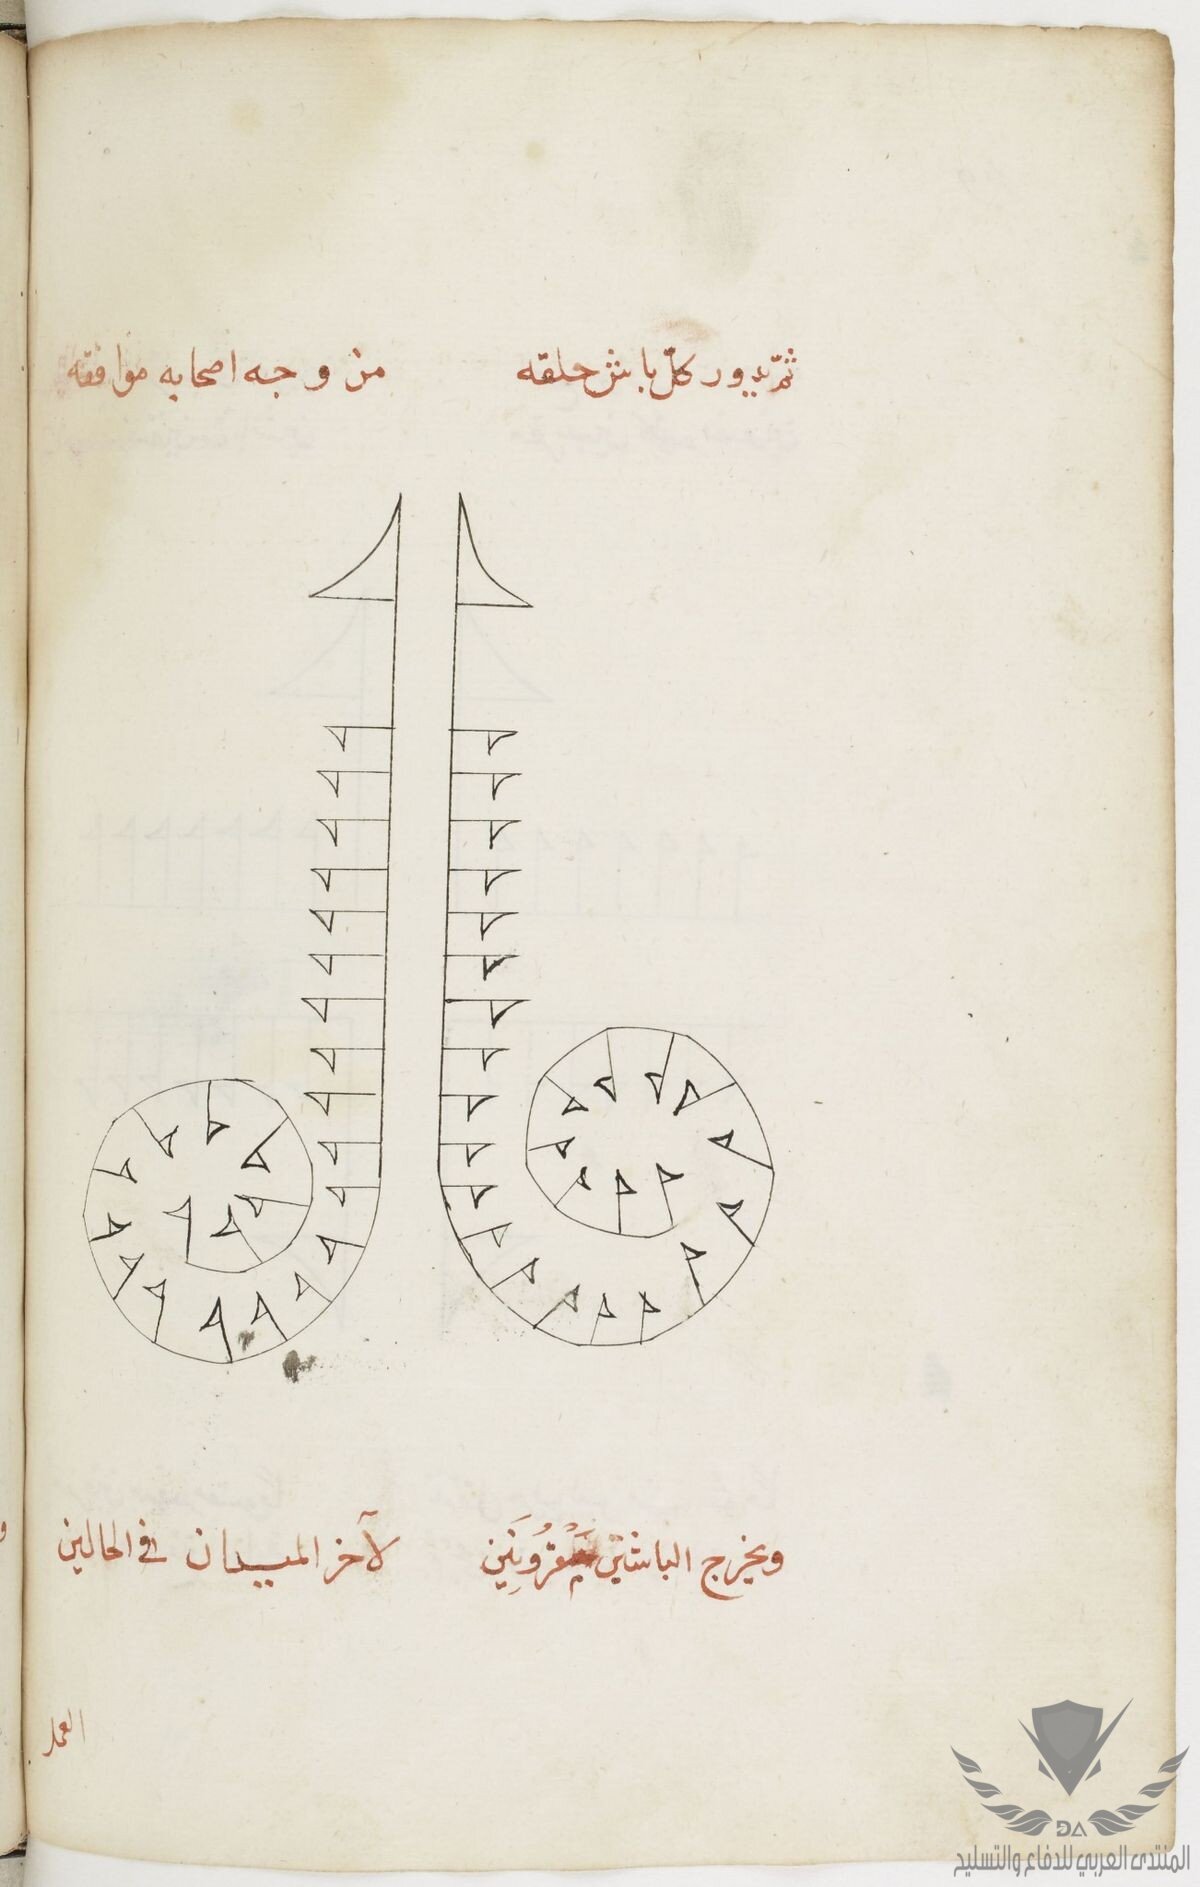 ثمّ يدور كلّ باش حلقه من وجه اصحابه موافقه
ويخرج الباشين مقرونين لآخر الميدان في الحالين
العمل
ĐA
المنتدى العربي للدفاع والتسليح